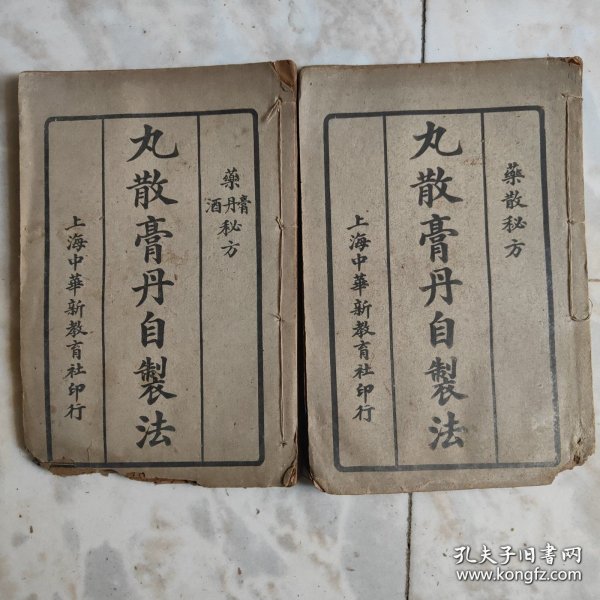 藥膏丹酒秘方
丸散膏丹自製法
上海中華新教育社印行
藥散秘方
丸散膏丹自製法
上海中華新教育社印行
孔夫子旧书网
www.kongfz.com